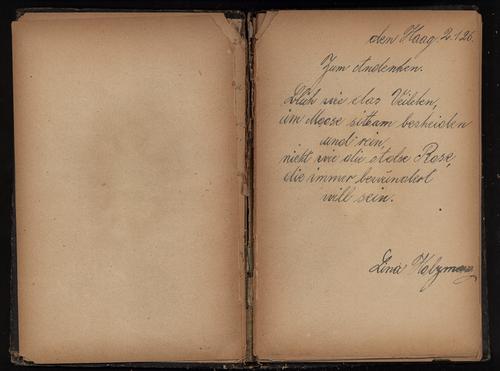 den Haag. 2.1.26.
Zum Andenken.
Blüh wie das Veilchen,
im Moose sittsam bescheiden
und rein,
nicht wie die stolze Rose,
die immer bewundert
will sein.
Lina